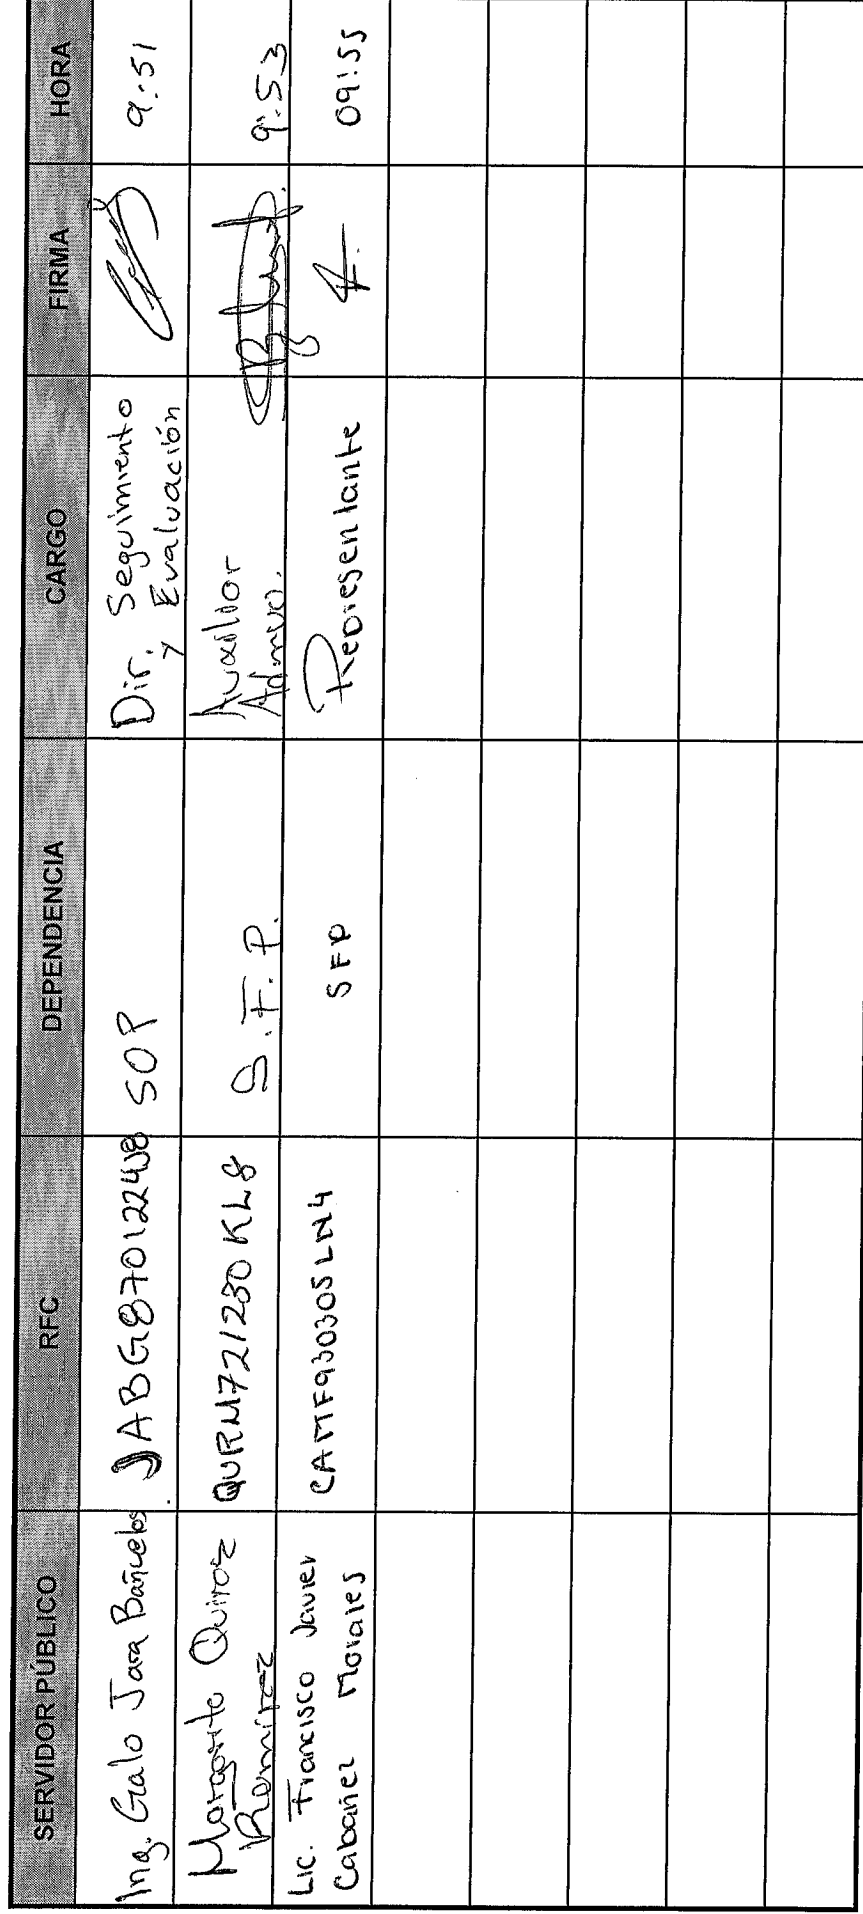 SERVIDOR PÚBLICO RFC DEPENDENCIA CARGO FIRMA HORA
Ing. Galo Jara Bañuelos JABG870122 SOP Dir. Seguimiento y Evaluación 9:51
Margarito Quiroz Ramírez QURM721230KL8 S.F.P. Auxiliar Admvo. 9:53
Lic. Francisco Javier Cabañez Morales CAMF930305LN4 SFP Representante 09:55